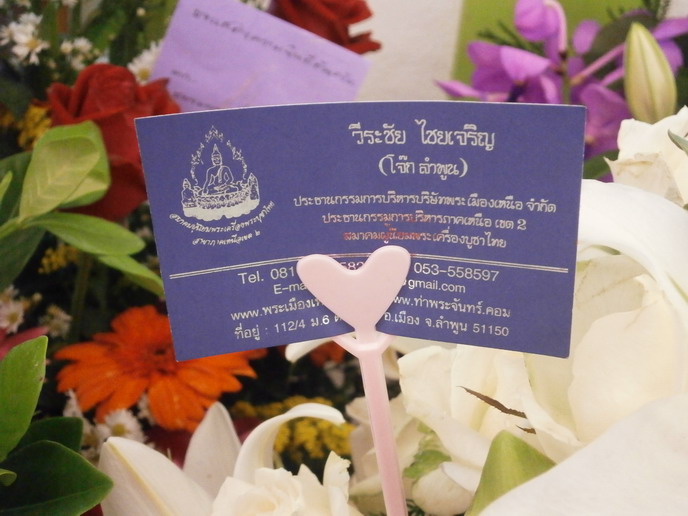 วีระชัย ไชยเจริญ
(โจ๊ก ลำพูน)
ประธานกรรมการบริหารบริษัทพระเมืองเหนือ จำกัด
ประธานกรรมการบริหารภาคเหนือ เขต 2
สมาคมผู้นิยมพระเครื่องบูชาไทย
สมาคมผู้นิยมพระเครื่องพระบูชาไทย
สาขาภาคเหนือเขต ๒
Tel. 081 053-558597
E-ma @gmail.com
www.พระเมืองเ www.ท่าพระจันทร์.คอม
ที่อยู่ : 112/4 ม.6 อ.เมือง จ.ลำพูน 51150